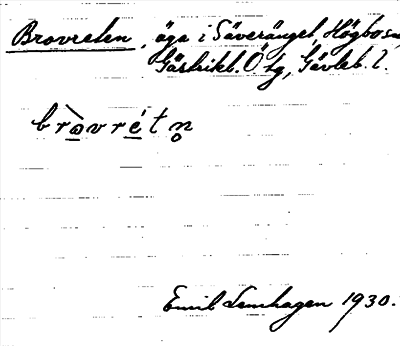 Brovreten, äga i Säveränget, Högbo sn,
Gästrikl. Ö tg, Gävleb. l.
bròvrét n̥
Emil Lemhagen 1930.